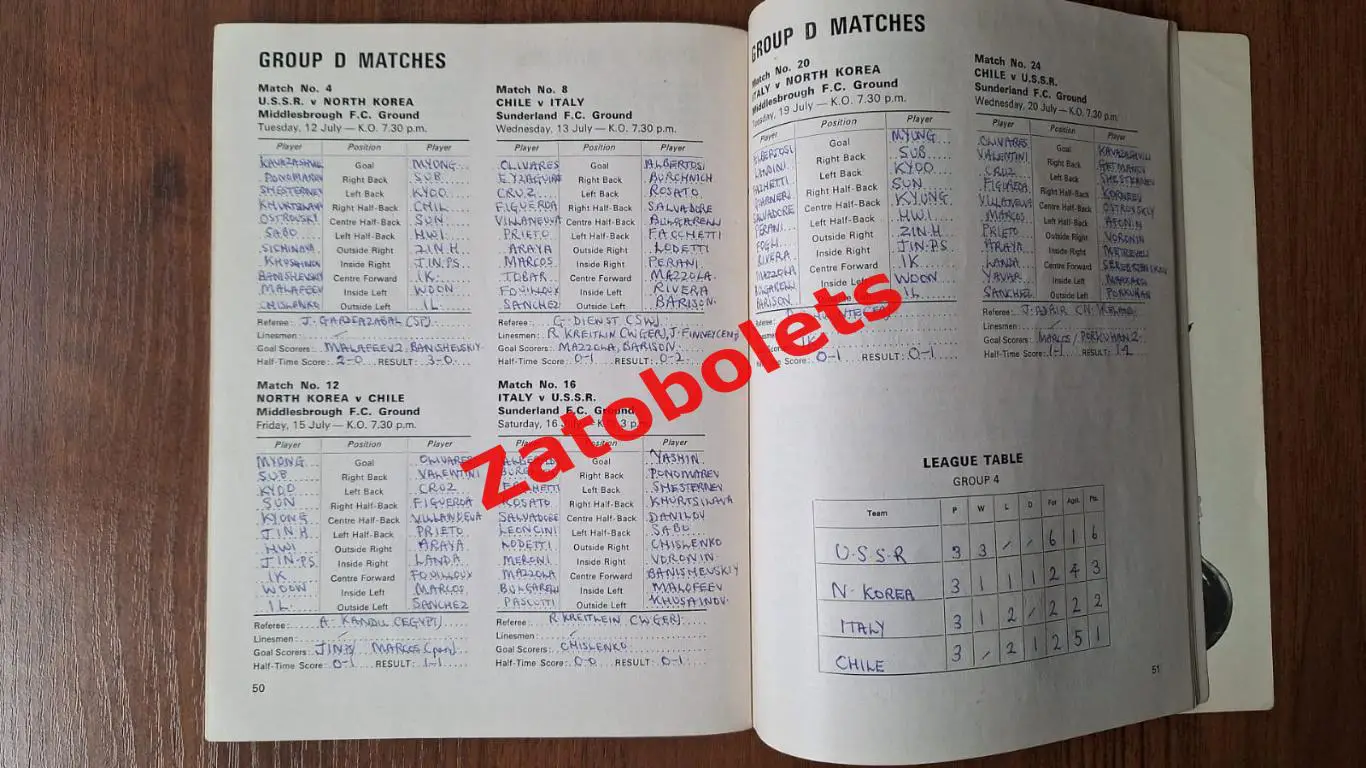 GROUP D MATCHES
Match No. 4
U.S.S.R. v NORTH KOREA
Middlesbrough F.C. Ground
Tuesday, 12 July — K.O. 7.30 p.m.
Player Position Player
Goal MYONG
PONOMAREV Right Back SUB
SHESTERNEV Left Back KYOO
KHURTSILAVA Right Half-Back CHIL
OSTROVSKY Centre Half-Back SUN
SABO Left Half-Back HWI
SICHINAVA Outside Right ZIN.H
KHUSAINOV Inside Right JIN.PS.
BANISHEVSKIY Centre Forward IK
MALAFEEV Inside Left WOON
CHISLENKO Outside Left IL
Referee: J. GARDEAZABAL (SP)
Linesmen:
Goal Scorers: MALAFEEV 2. BANISHEVSKIY
Half-Time Score: 2-0 RESULT: 3-0
Match No. 8
CHILE v ITALY
Sunderland F.C. Ground
Wednesday, 13 July — K.O. 7.30 p.m.
Player Position Player
OLIVARES Goal ALBERTOSI
EYZAGUIRE Right Back BURGNICH
CRUZ Left Back ROSATO
FIGUEROA Right Half-Back SALVADORE
VILLANEUVA Centre Half-Back BULGARELLI
PRIETO Left Half-Back FACCHETTI
ARAYA Outside Right LODETTI
MARCOS Inside Right PERANI
TOBAR Centre Forward MAZZOLA
FOUILLOUX Inside Left RIVERA
SANCHEZ Outside Left BARISON
Referee: G. DIENST (SW)
Linesmen: R. KREITLIN (W GER), J. FINNEY (EN)
Goal Scorers: MAZZOLA, BARISON
Half-Time Score: 0-1 RESULT: 0-2
Match No. 12
NORTH KOREA v CHILE
Middlesbrough F.C. Ground
Friday, 15 July — K.O. 7.30 p.m.
Player Position Player
MYONG Goal OLIVARES
SUB Right Back VALENTINI
KYOO Left Back CRUZ
SUN Right Half-Back FIGUEROA
KYONG Centre Half-Back VILLANUEVA
JIN.H Left Half-Back PRIETO
HWI Outside Right ARAYA
JIN-PS Inside Right LANDA
IK Centre Forward FOUILLOUX
WOON Inside Left MARCOS
IL Outside Left SANCHEZ
Referee: A. KANDIL (EGYPT)
Linesmen:
Goal Scorers: JINPS / MARCOS (pen)
Half-Time Score: 0-1 RESULT: 1-1
Match No. 16
ITALY v U.S.S.R.
Sunderland F.C. Ground
Saturday, 16 July — K.O. 3 p.m.
Player Position Player
Goal YASHIN
Right Back PONOMAREV
Left Back SHESTERNEV
ROSATO Right Half-Back KHURTSILAVA
SALVADORE Centre Half-Back DANILOV
LEONCINI Left Half-Back SABO
LODETTI Outside Right CHISLENKO
MERONI Inside Right VORONIN
MAZZOLA Centre Forward BANISHEVSKIY
BULGARELLI Inside Left MALOFEEV
PASCUTTI Outside Left KHUSAINOV
Referee: R KREITLEIN (W GER)
Linesmen:
Goal Scorers: CHISLENKO
Half-Time Score: 0-0 RESULT: 0-1
50
GROUP D MATCHES
Match No. 20
ITALY v NORTH KOREA
Middlesbrough F.C. Ground
Tuesday, 19 July — K.O. 7.30 p.m.
Player Position Player
ALBERTOSI Goal MYONG
LANDINI Right Back SUB
FACCHETTI Left Back KYOO
GUARNERI Right Half-Back SUN
SALVADORE Centre Half-Back KYONG
PERANI Left Half-Back HWI
FOGLI Outside Right ZIN.H
RIVERA Inside Right JIN.PS
MAZZOLA Centre Forward IK
BULGARELLI Inside Left WOON
BARISON Outside Left IL
Referee:
Linesmen:
Goal Scorers: IK
Half-Time Score: 0-1 RESULT: 0-1
Match No. 24
CHILE v U.S.S.R.
Sunderland F.C. Ground
Wednesday, 20 July — K.O. 7.30 p.m.
Player Position Player
OLIVARES Goal KAVAZASHVILI
VALENTINI Right Back GETMANEV
CRUZ Left Back SHESTERNEV
FIGUEROA Right Half-Back KORNEEV
VILLANUEVA Centre Half-Back OSTROVSKIY
MARCOS Left Half-Back AFONIN
PRIETO Outside Right VORONIN
ARAYA Inside Right METREVELI
LANDA Centre Forward SEREBRYANIKOV
YAVAR Inside Left
SANCHEZ Outside Left PORKUJAN
Referee: J. ADAIR (N. IRELAND)
Linesmen:
Goal Scorers: MARCOS / PORKUHAN 2
Half-Time Score: 1-1 RESULT: 1-2
LEAGUE TABLE
GROUP 4
Team P W L D For Agst. Pts.
U.S.S.R 3 3 - - 6 1 6
N. KOREA 3 1 1 1 2 4 3
ITALY 3 1 2 - 2 2 2
CHILE 3 - 2 1 2 5 1
51
zatobolets